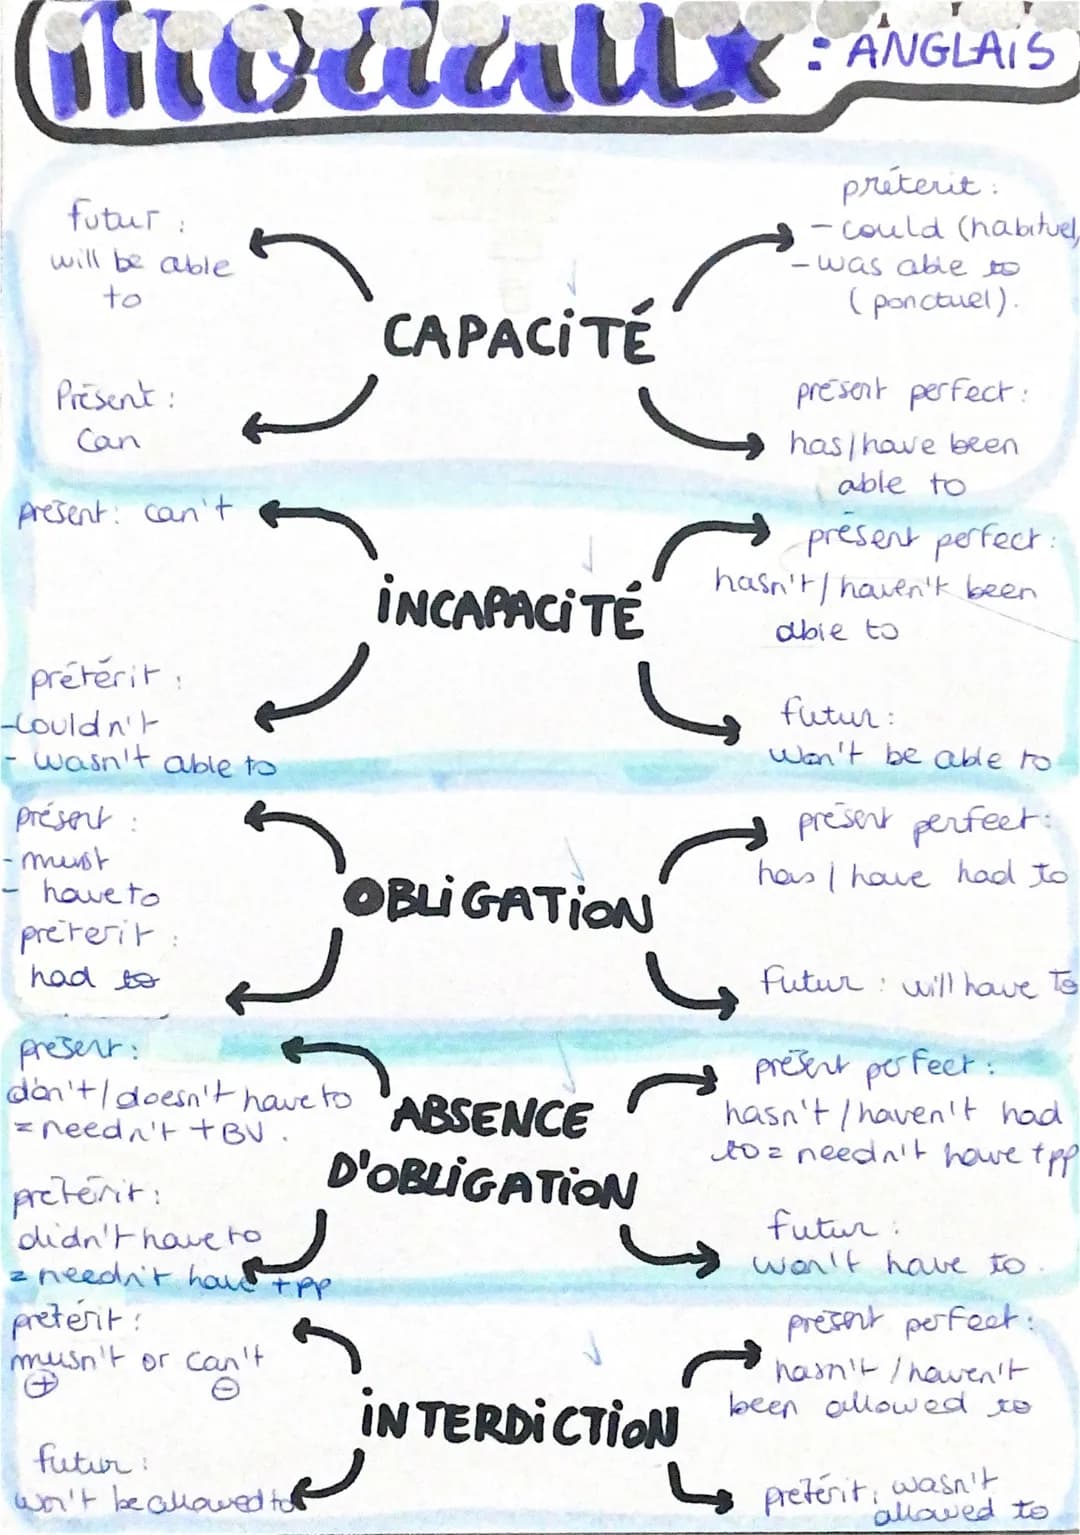 modaux : ANGLAIS
futur :
will be able
to
Présent :
Can
CAPACITÉ
prétérit :
- could (habituel,
- was able to
(ponctuel).
présent perfect :
has/have been
able to
présent : can't
prétérit :
- couldn't
- wasn't able to
INCAPACITÉ
présent perfect :
hasn't/haven't been
able to
futur :
won't be able to
présent :
- must
- have to
préterit :
had to
OBLIGATION
présent perfect :
has / have had to
futur : will have to
présent :
don't/doesn't have to
= needn't + BV.
prétérit :
didn't have to
= needn't have + pp
ABSENCE
D'OBLIGATION
présent perfect :
hasn't / haven't had
to = needn't have + pp
futur :
won't have to.
prétérit :
musn't or can't
+ -
futur :
won't be allowed to
INTERDICTION
présent perfect :
hasn't / haven't
been allowed to
prétérit : wasn't
allowed to